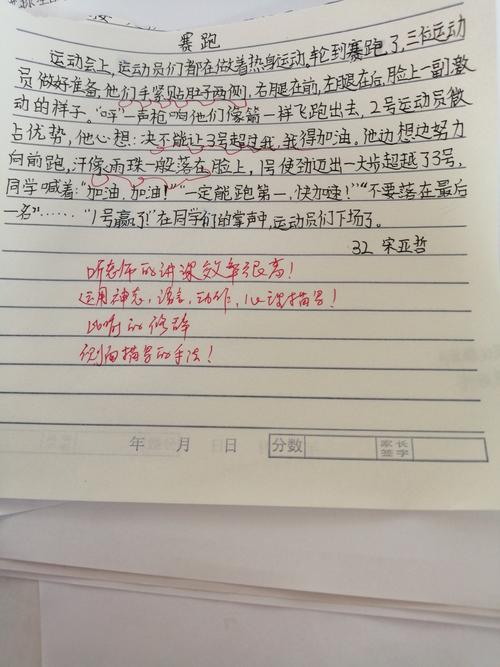 赛跑
运动会上,运动员们都在做着热身运动。轮到赛跑了,三位运动
员做好准备,他们手紧贴肚子两侧,右腿在前,左腿在后,脸上一副激
动的样子。“呯”一声枪响他们像箭一样飞跑出去,2号运动员微
占优势,他心想:决不能让3号超过我,我得加油。他边想边努力
向前跑,汗像雨珠一般落在脸上,1号使劲迈出一大步超越了3号,
同学喊着:“加油,加油!”“一定能跑第一,快加哇!”“不要落在最后
一名”……“1号赢了!”在同学们的掌声中,运动员们下场了。
32 宋亚哲
听老师的讲课效率很高!
运用神态,语言,动作,心理描写!
比喻的修辞
侧面描写的手法!
年 月 日 分数 家长签字